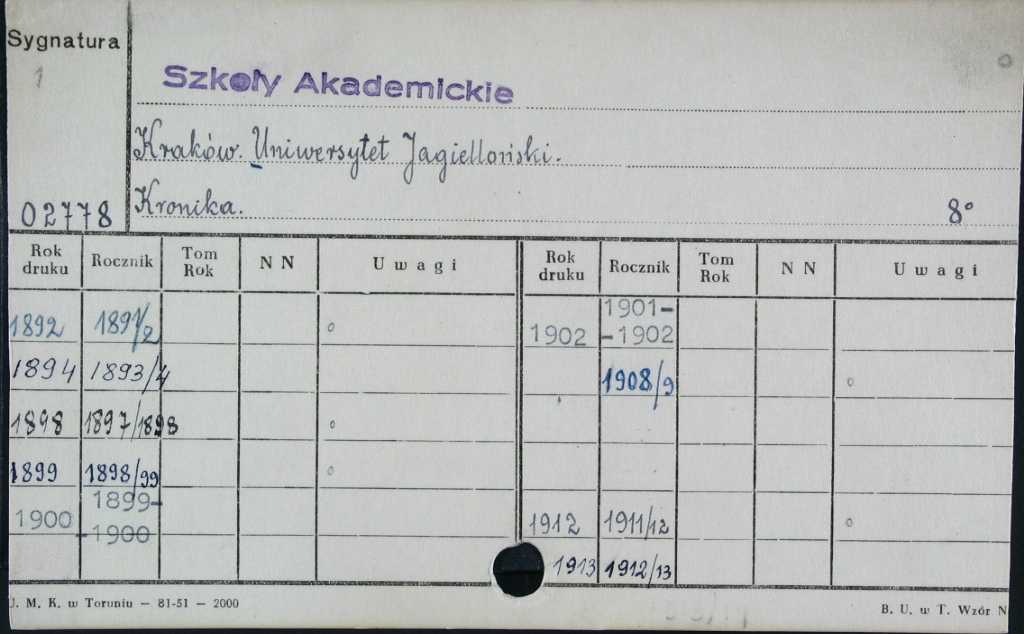 Sygnatura
1
Szkoły Akademickie
Kraków. Uniwersytet Jagielloński.
02778 Kronika. 8°
Rok druku Rocznik Tom Rok N N Uwagi Rok druku Rocznik Tom Rok N N Uwagi
1892 1891/2 o 1902 1901-
-1902
1894 1893/4 1908/9 o
1898 1897/1898 o
1899 1898/99 o
1900 1899-
-1900 1912 1911/12 o
1913 1912/13
U. M. K. w Toruniu — 81-51 — 2000 B. U. w T. Wzór N